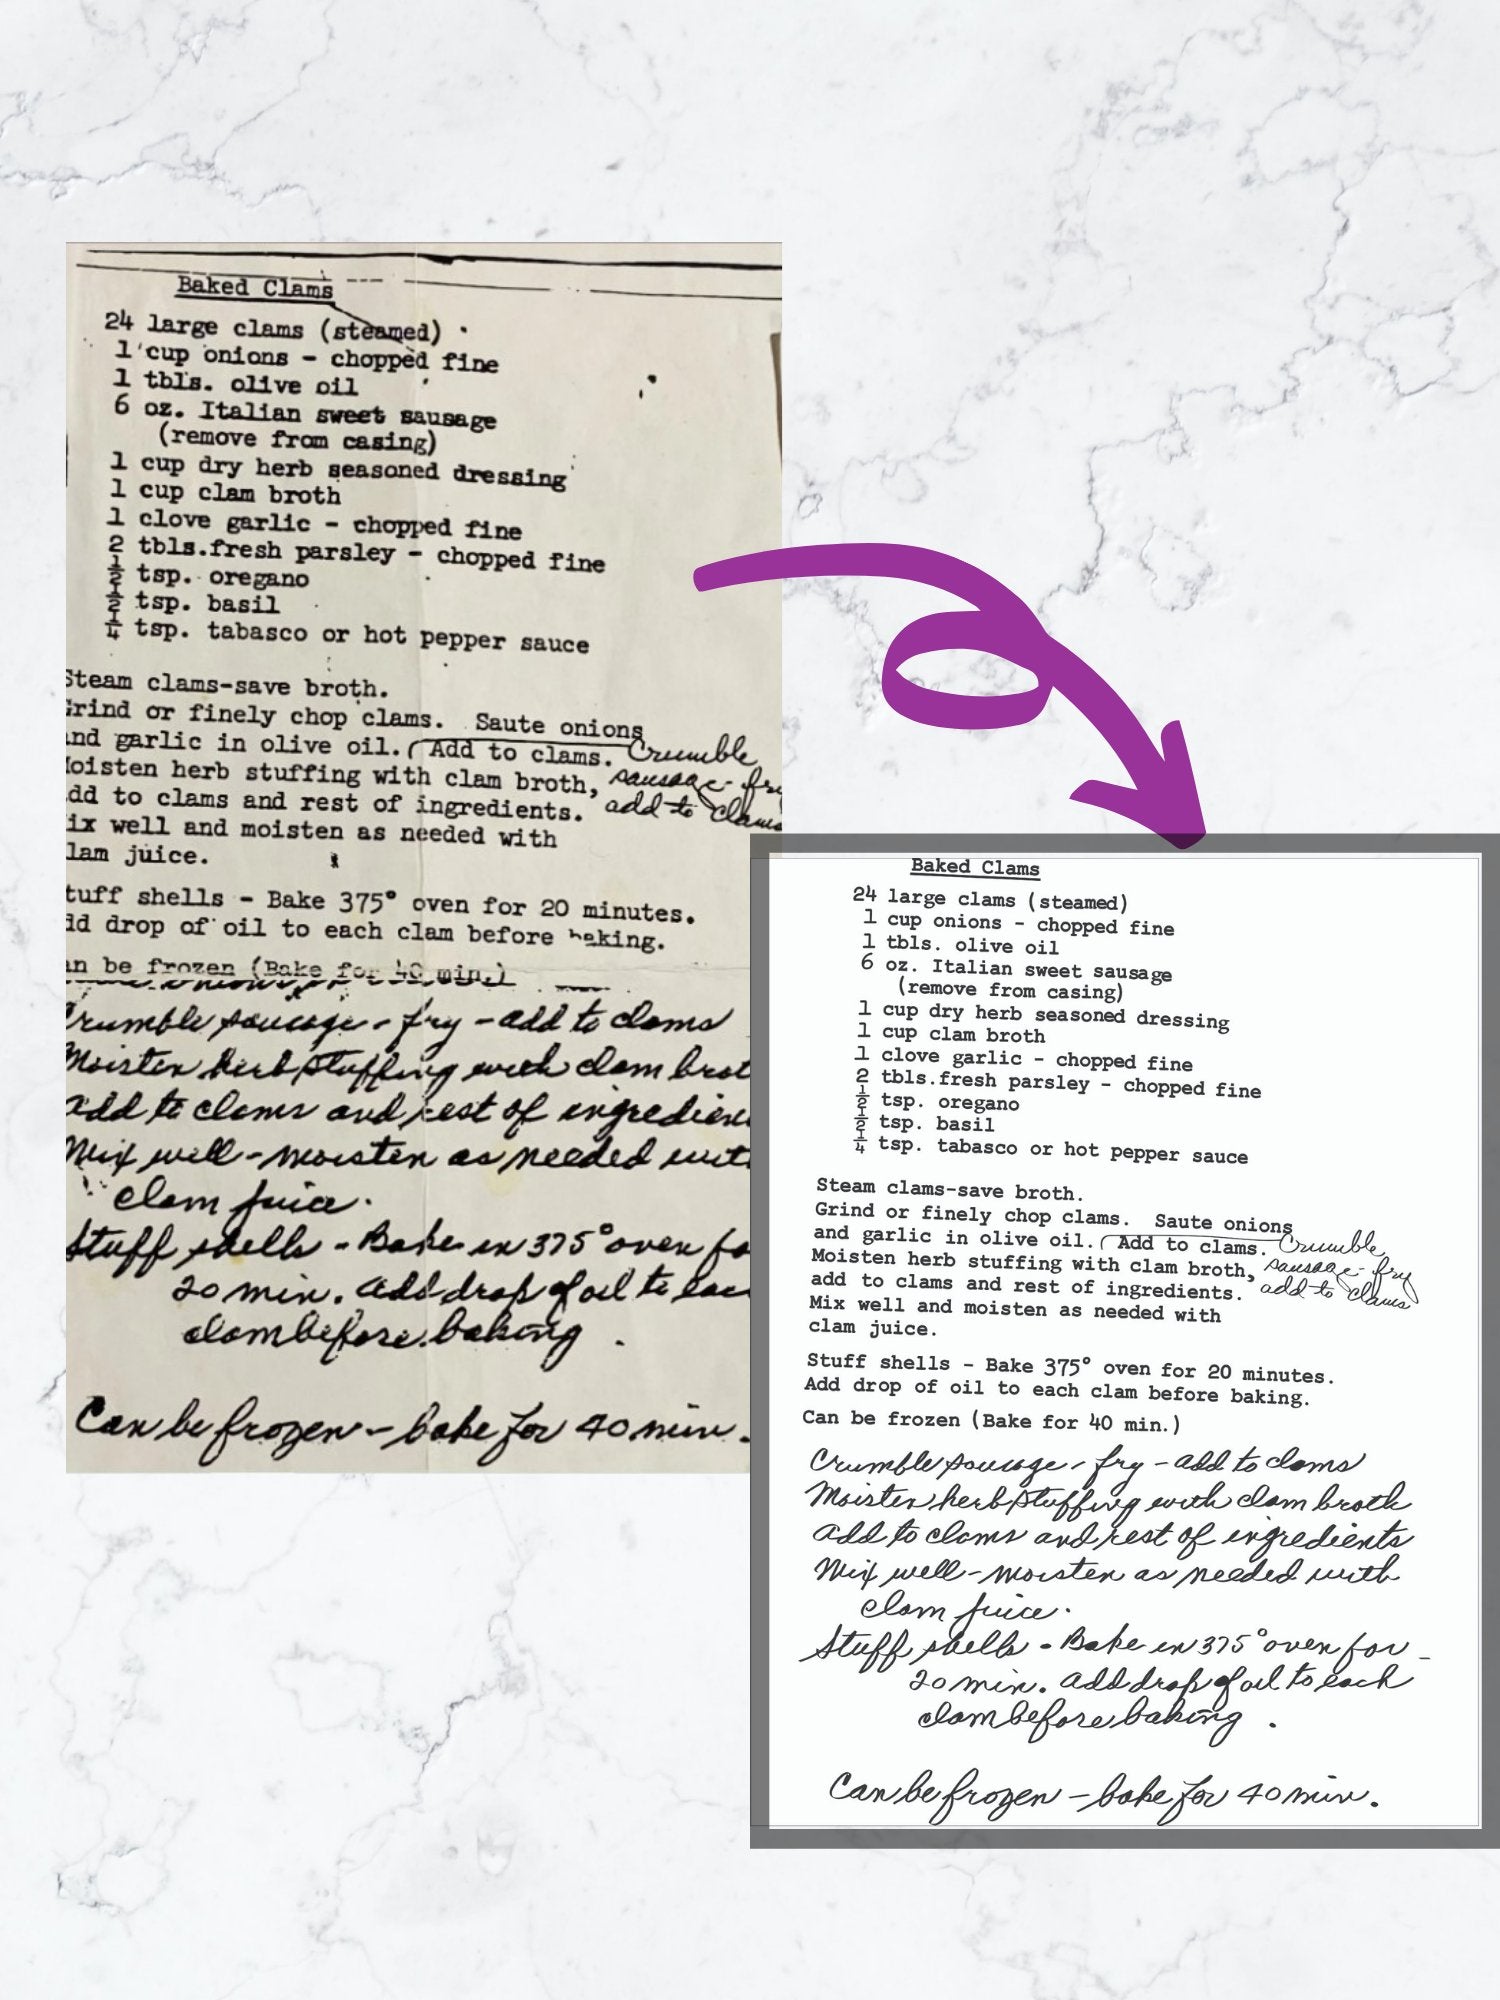 Baked Clams
24 large clams (steamed)
1 cup onions - chopped fine
1 tbls. olive oil
6 oz. Italian sweet sausage
(remove from casing)
1 cup dry herb seasoned dressing
1 cup clam broth
1 clove garlic - chopped fine
2 tbls.fresh parsley - chopped fine
½ tsp. oregano
½ tsp. basil
¼ tsp. tabasco or hot pepper sauce
Steam clams-save broth.
Grind or finely chop clams. Saute onions
and garlic in olive oil. Add to clams. Crumble
oisten herb stuffing with clam broth, sausage - fry
dd to clams and rest of ingredients. add to clams
ix well and moisten as needed with
lam juice.
tuff shells - Bake 375° oven for 20 minutes.
dd drop of oil to each clam before baking.
an be frozen (Bake for 40 min.)
Crumble sausage - fry - add to clams
Moisten herb stuffing with clam brot
add to clams and rest of ingredien
Mix well - moisten as needed wit
clam juice.
Stuff shells - Bake in 375° oven fo
20 min. add drop of oil to eac
clam before baking.
Can be frozen - bake for 40 min.
Baked Clams
24 large clams (steamed)
1 cup onions - chopped fine
1 tbls. olive oil
6 oz. Italian sweet sausage
(remove from casing)
1 cup dry herb seasoned dressing
1 cup clam broth
1 clove garlic - chopped fine
2 tbls.fresh parsley - chopped fine
½ tsp. oregano
½ tsp. basil
¼ tsp. tabasco or hot pepper sauce
Steam clams-save broth.
Grind or finely chop clams. Saute onions
and garlic in olive oil. Add to clams. Crumble
Moisten herb stuffing with clam broth, sausage - fry
add to clams and rest of ingredients. add to clams
Mix well and moisten as needed with
clam juice.
Stuff shells - Bake 375° oven for 20 minutes.
Add drop of oil to each clam before baking.
Can be frozen (Bake for 40 min.)
Crumble sausage - fry - add to clams
Moisten herb stuffing with clam broth
add to clams and rest of ingredients
Mix well - moisten as needed with
clam juice.
Stuff shells - Bake in 375° oven for
20 min. add drop of oil to each
clam before baking.
Can be frozen - bake for 40 min.